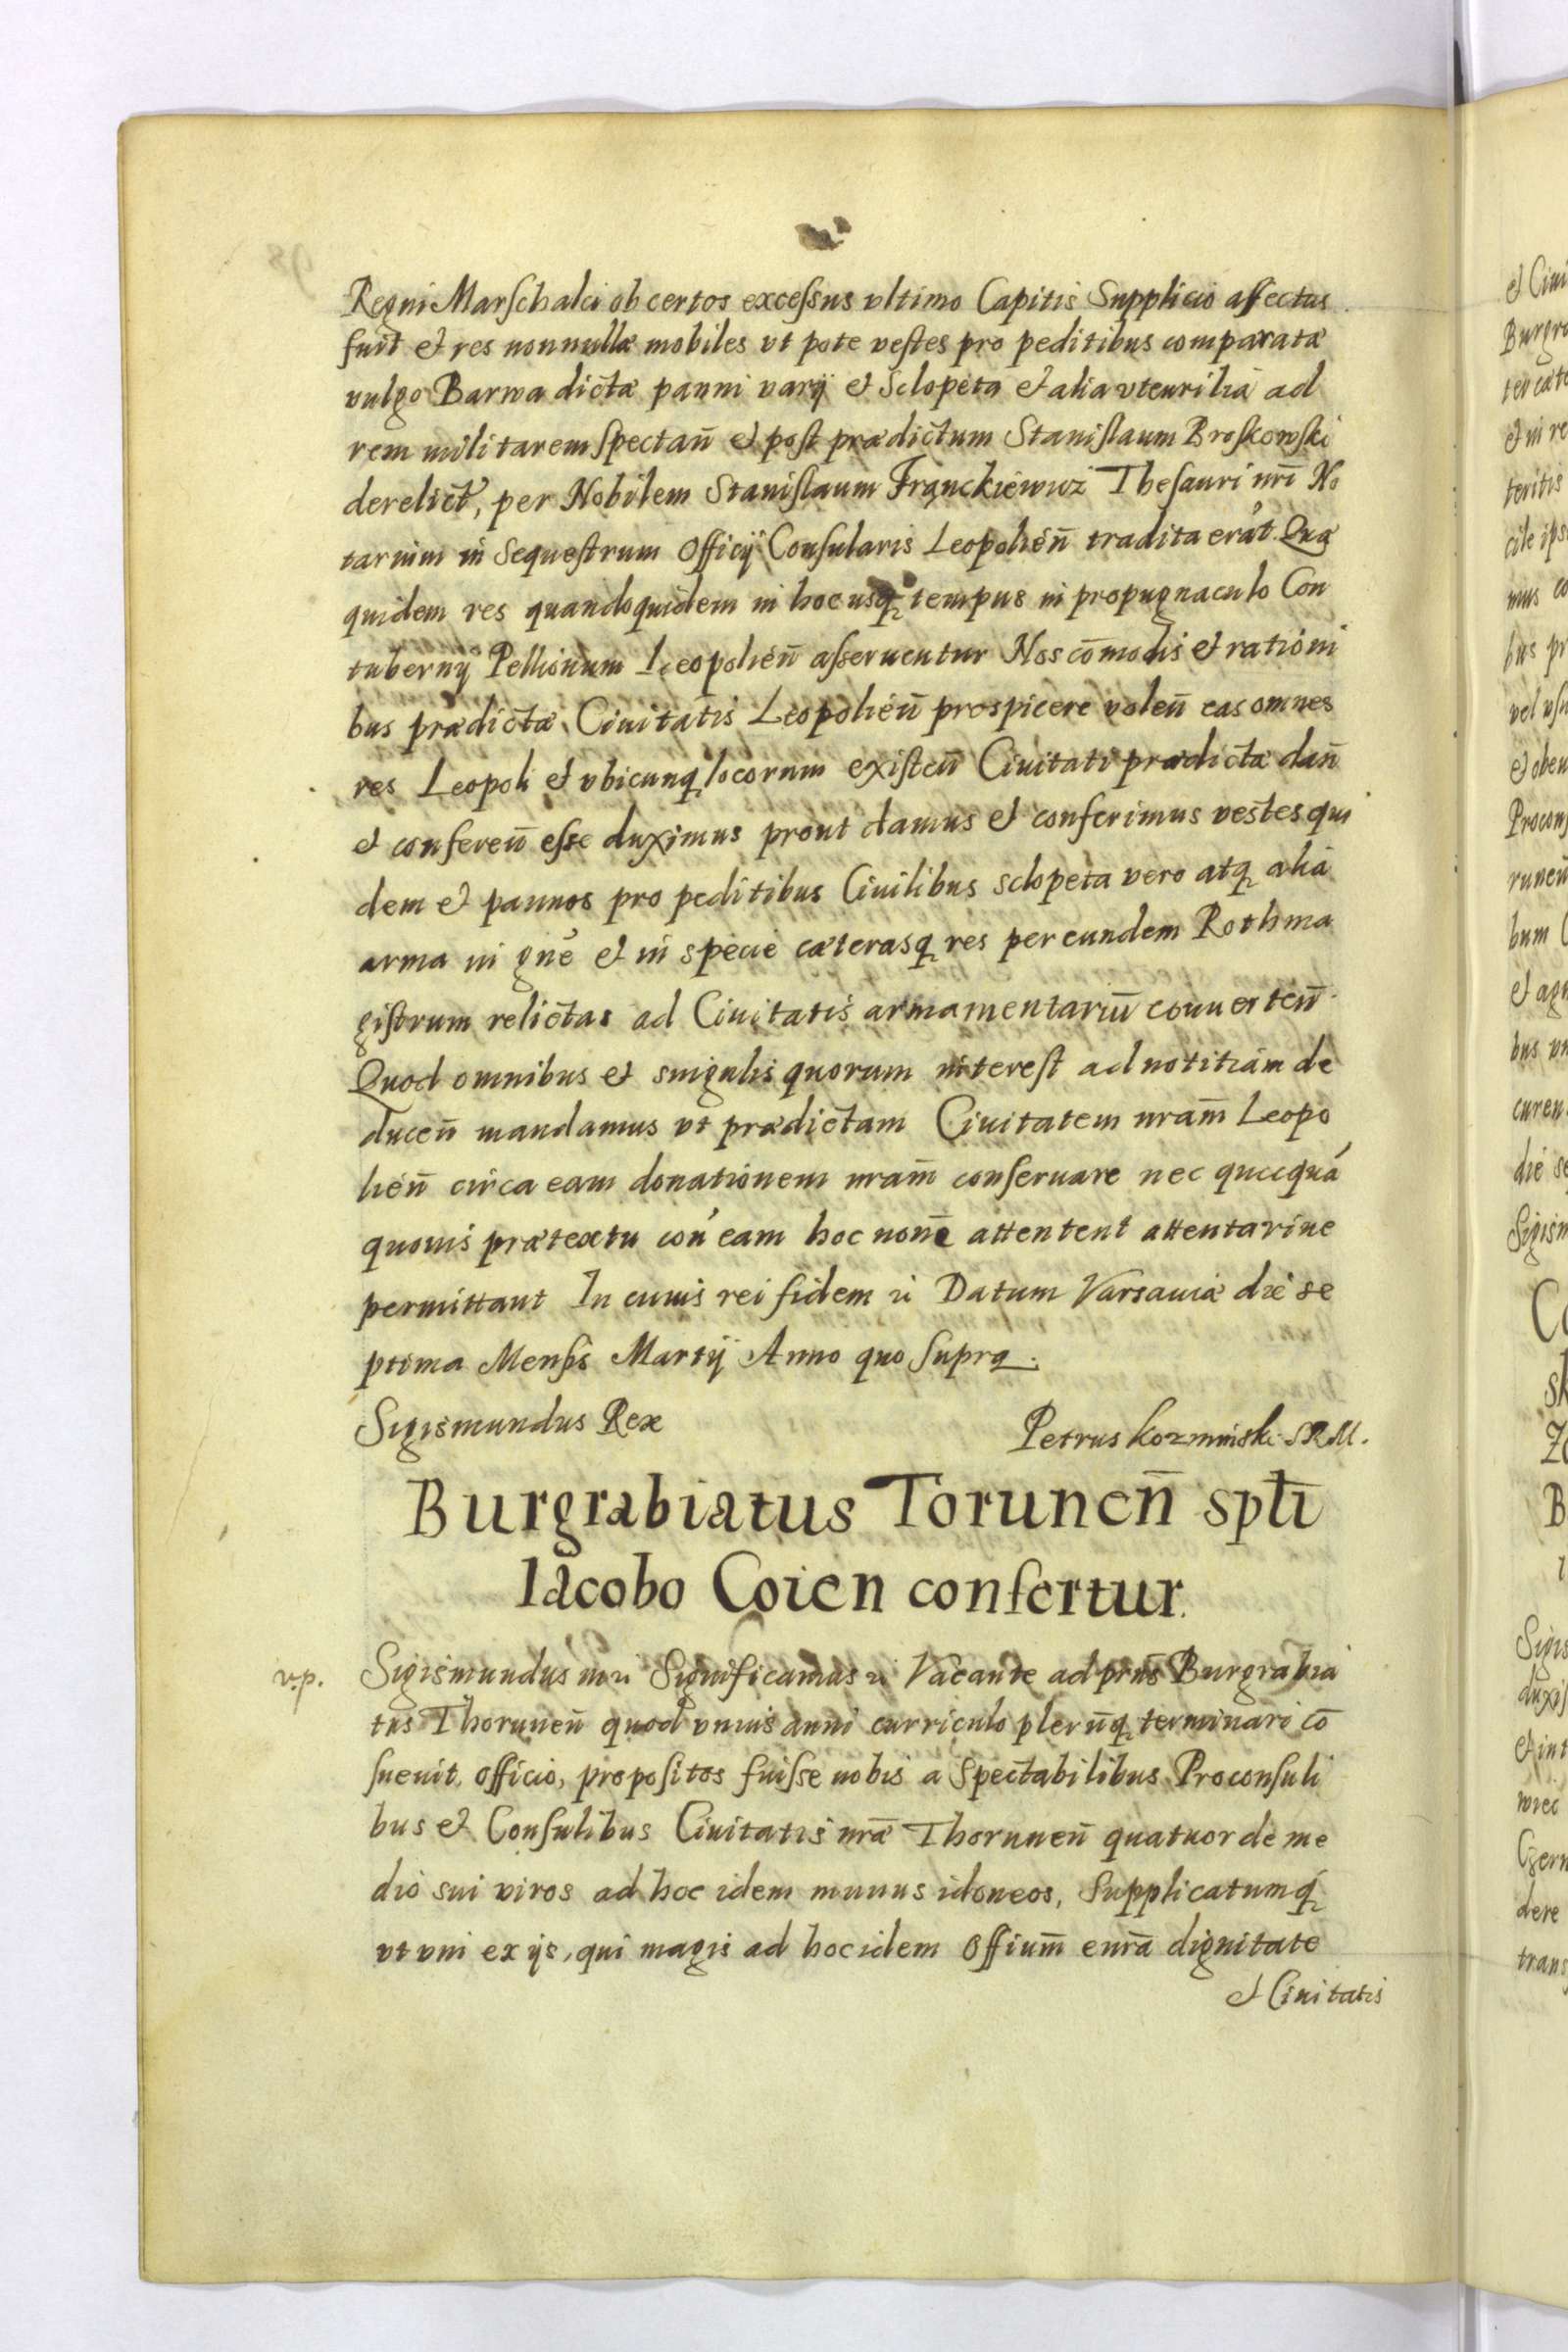 Regni Marschalci ob certos excessus vltimo Capitis Supplicio affectus
fuit et res nonnullæ mobiles vt pote vestes pro peditibus comparatæ
vulgo Barwa dictæ panni varÿ et Sclopeta et alia vtensilia ad
rem militarem spectan̄ et post prædictum Stanislaum Broskowski
derelict, per Nobilem Stanislaum Franckiewicz Thesauri nr̄i No
tarium in Sequestrum Officÿ Consularis Leopolien̄ tradita erāt. Quæ
quidem res quandoquidem in hoc usq tempus in propugnaculo Con
tubernÿ Pellionum Leopolien̄ asseruentur Nos com̄odis et rationi
bus prædictæ Ciuitatis Leopolien̄ prospicere volen̄ eas omnes
res Leopoli et vbicunq locorum existen̄ Ciuitati prædictæ dan̄
et conferen̄ esse duximus prout damus et conferimus vestes qui
dem et pannos pro peditibus Ciuilibus sclopeta vero atq alia
arma in gn̄e et in specie cæterasq res per eundem Rothma
gistrum relictas ad Ciuitatis armamentariū conuerten̄.
Quod omnibus et singulis quorum interest ad notitiam de
ducen̄ mandamus vt prædictam Ciuitatem nram̄ Leopo
lien̄ circa eam donationem nram̄ conseruare nec quicquā
quouis prætextu con̄ eam hoc non̄e attentent attentariue
permittant In cuius rei fidem rc Datum Varsauiæ die se
ptima Mensis Martÿ Anno quo supra.
Sigismundus Rex
Petrus Kozminski S R M.
Burgrabiatus Torunen̄ sptī
Iacobo Coien confertur.
v.p.
Sigismundus III rc Significamus rc Vacante ad prn̄s Burgrabia
tus Thorunen̄ quod vnius anni curriculo plerūq terminari cō
sueuit, officio, propositos fuisse nobis a Spectabilibus Proconsuli
bus et Consulibus Ciuitatis nrǣ Thorunen̄ quatuor de me
dio sui viros ad hoc idem munus idoneos, Supplicatumq
vt vni ex ÿs, qui magis ad hoc idem Offium̄ ex nrā dignitate
et Ciuitatis